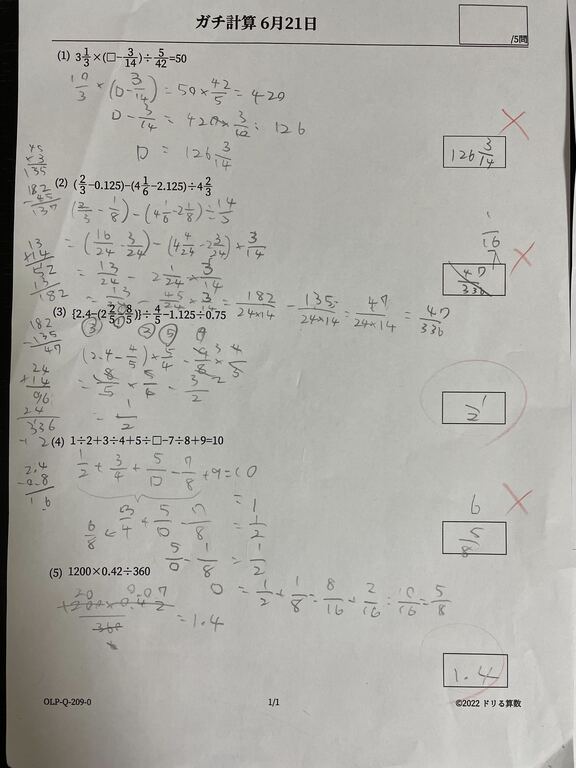 ガチ計算 6月21日
/5問
(1) 3 1/3 ×(□− 3/14)÷ 5/42 =50
10/3 × (□− 3/14) = 50 × 42/5 = 420
□− 3/14 = 420 × 3/10 = 126
□ = 126 3/14
126 3/14
45
×3
135
182
−45
137
(2) (2/3 −0.125)−(4 1/6 −2.125)÷4 2/3
(2/3 − 1/8) − (4 1/6 − 2 1/8) ÷ 14/3
= (16/24 − 3/24) − (4 4/24 − 2 3/24) × 3/14
= 13/24 − 2 1/24 × 3/14
= 13/24 − 45/24 × 3/14 = 182/24×14 − 135/24×14 = 47/24×14 = 47/336
1/16
47/336
13
×14
52
13
182
(3) {2.4−(2 2/5 − 8/5)}÷ 4/5 −1.125÷0.75
(2.4 − 4/5) × 5/4 − 9/8 × 4/3
= 8/5 × 5/4 − 3/2
= 1/2
1/2
182
−135
47
24
×14
96
24
336
(4) 1÷2+3÷4+5÷□−7÷8+9=10
1/2 + 3/4 + 5/□ − 7/8 + 9 = 10
= 1
6/8 ← 3/4 + 5/□ − 7/8 = 1/2
5/□ − 1/8 = 1/2
□ = 1/2 + 1/8 = 8/16 + 2/16 = 10/16 = 5/8
6
5/8
2.4
−0.8
1.6
(5) 1200×0.42÷360
20 0.07
1200×0.42
360
= 1.4
1.4
OLP-Q-209-0
1/1
©2022 ドリる算数